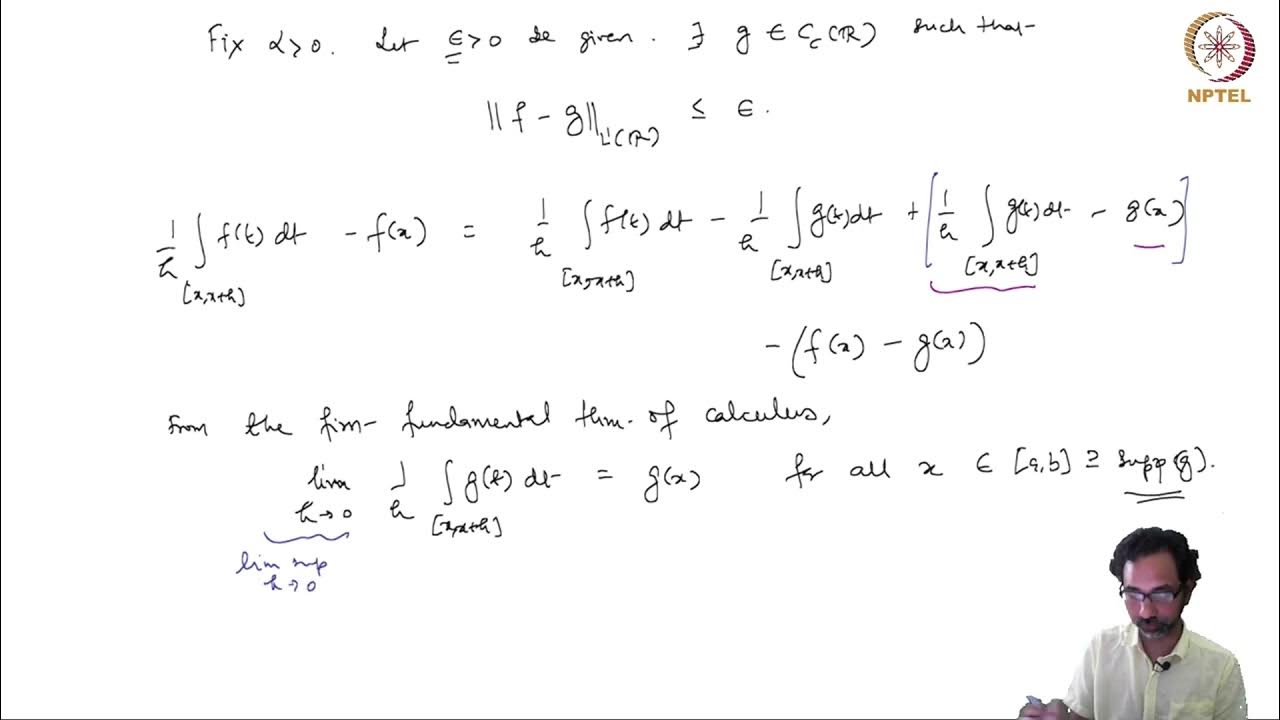 Fix α>0. Let ε>0 be given. ∃ g ∈ C_c(ℝ) such that
NPTEL
‖f - g‖_{L¹(ℝ)} ≤ ε.
1/h ∫_{[x,x+h]} f(t) dt - f(x) = 1/h ∫_{[x,x+h]} f(t) dt - 1/h ∫_{[x,x+h]} g(t) dt + [1/h ∫_{[x,x+h]} g(t) dt - g(x)]
- (f(x) - g(x))
From the first fundamental thm. of calculus,
lim_{h→0} 1/h ∫_{[x,x+h]} g(t) dt = g(x) for all x ∈ [a,b] ⊇ supp(g).
lim sup_{h→0}